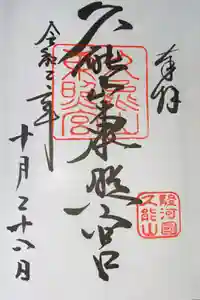 奉拝
久能山東照宮
令和二年
十月二十八日
久能山東照宮
駿河國
久能山